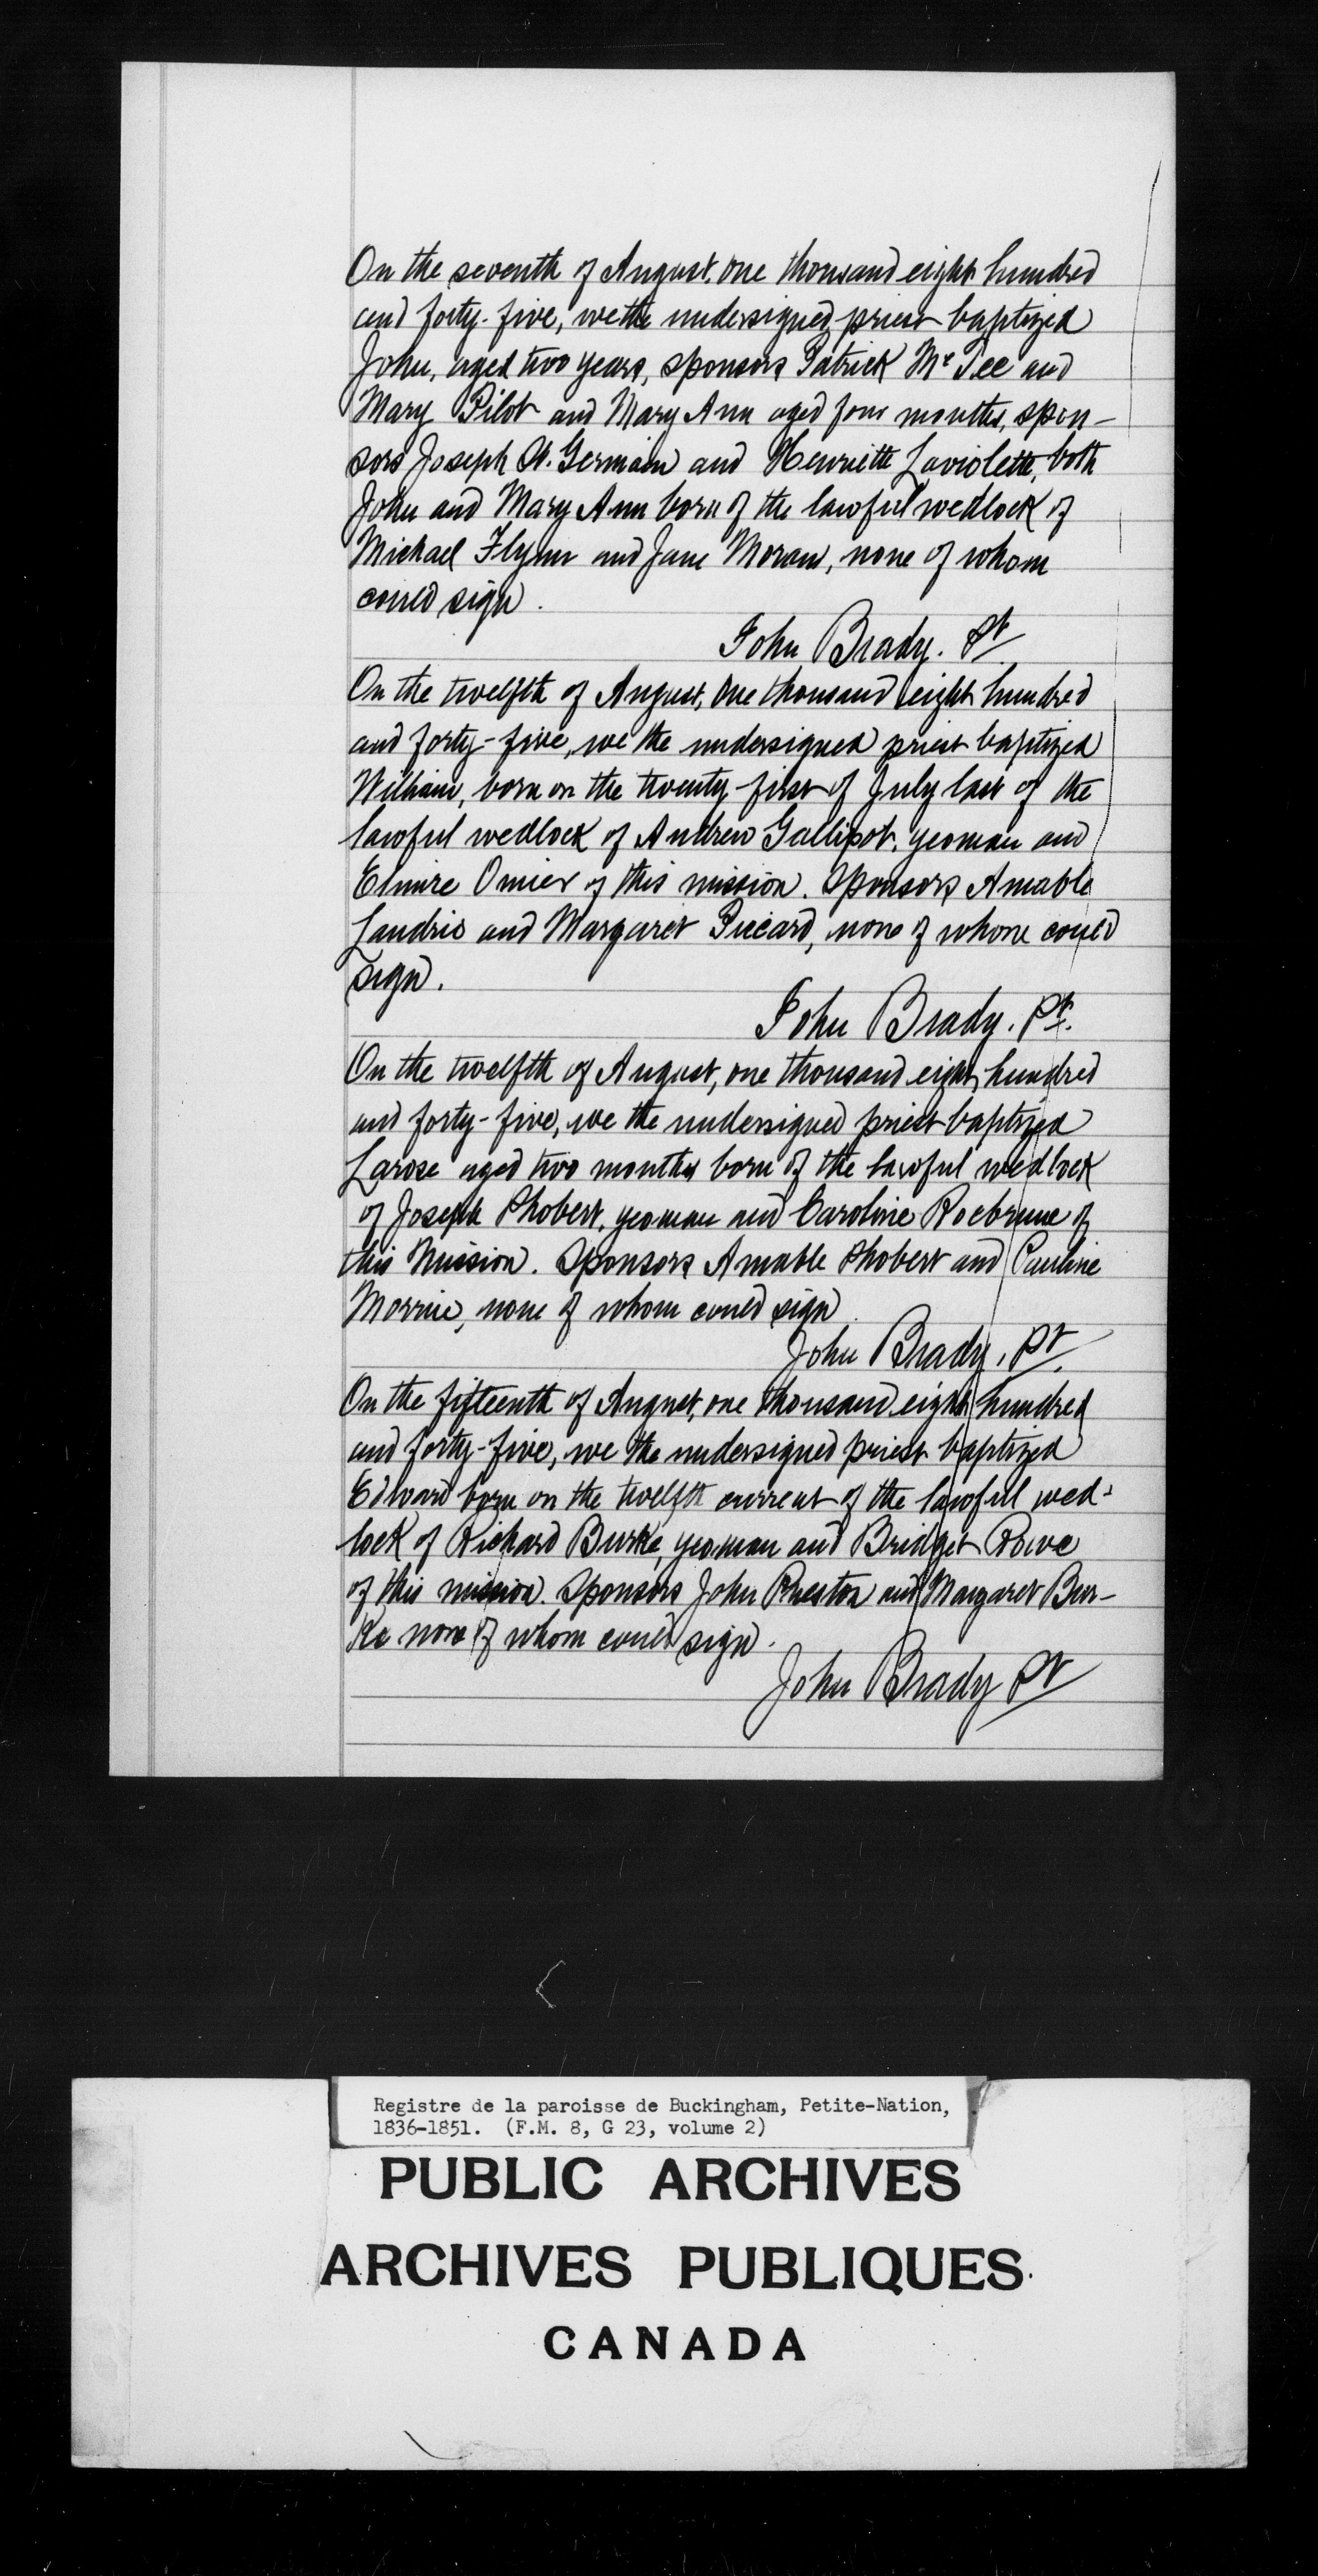 On the seventh of August, one thousand eight hundred
and forty-five, we the undersigned priest baptized
John, aged two years, sponsors Patrick Mc Tee and
Mary Pilot and Mary Ann aged four months, spon-
sors Joseph St. Germain and Henriette Laviolette, both
John and Mary Ann born of the lawful wedlock of
Michael Flynn and Jane Moran, none of whom
could sign.
John Brady. Pt
On the twelfth of August, one thousand eight hundred
and forty-five, we the undersigned priest baptized
William, born on the twenty-first of July last of the
lawful wedlock of Andrew Gallipot, yeoman and
Elmire Omier of this mission. Sponsors Amable
Landrie and Margaret Piccard, none of whom could
sign.
John Brady. Pt.
On the twelfth of August, one thousand eight hundred
and forty-five, we the undersigned priest baptized
Larose aged two months born of the lawful wedlock
of Joseph Phobert, yeoman and Caroline Rocbrune of
this Mission. Sponsors Amable Phobert and Pauline
Morrin, none of whom could sign
John Brady, Pt.
On the fifteenth of August, one thousand eight hundred
and forty-five, we the undersigned priest baptized
Edward born on the twelfth current of the lawful wed-
lock of Richard Burke, yeoman and Bridget Rowe
of this mission. Sponsors John Preston and Margaret Bur-
ke none of whom could sign.
John Brady Pt
Registre de la paroisse de Buckingham, Petite-Nation,
1836-1851. (F.M. 8, G 23, volume 2)
PUBLIC ARCHIVES
ARCHIVES PUBLIQUES
CANADA